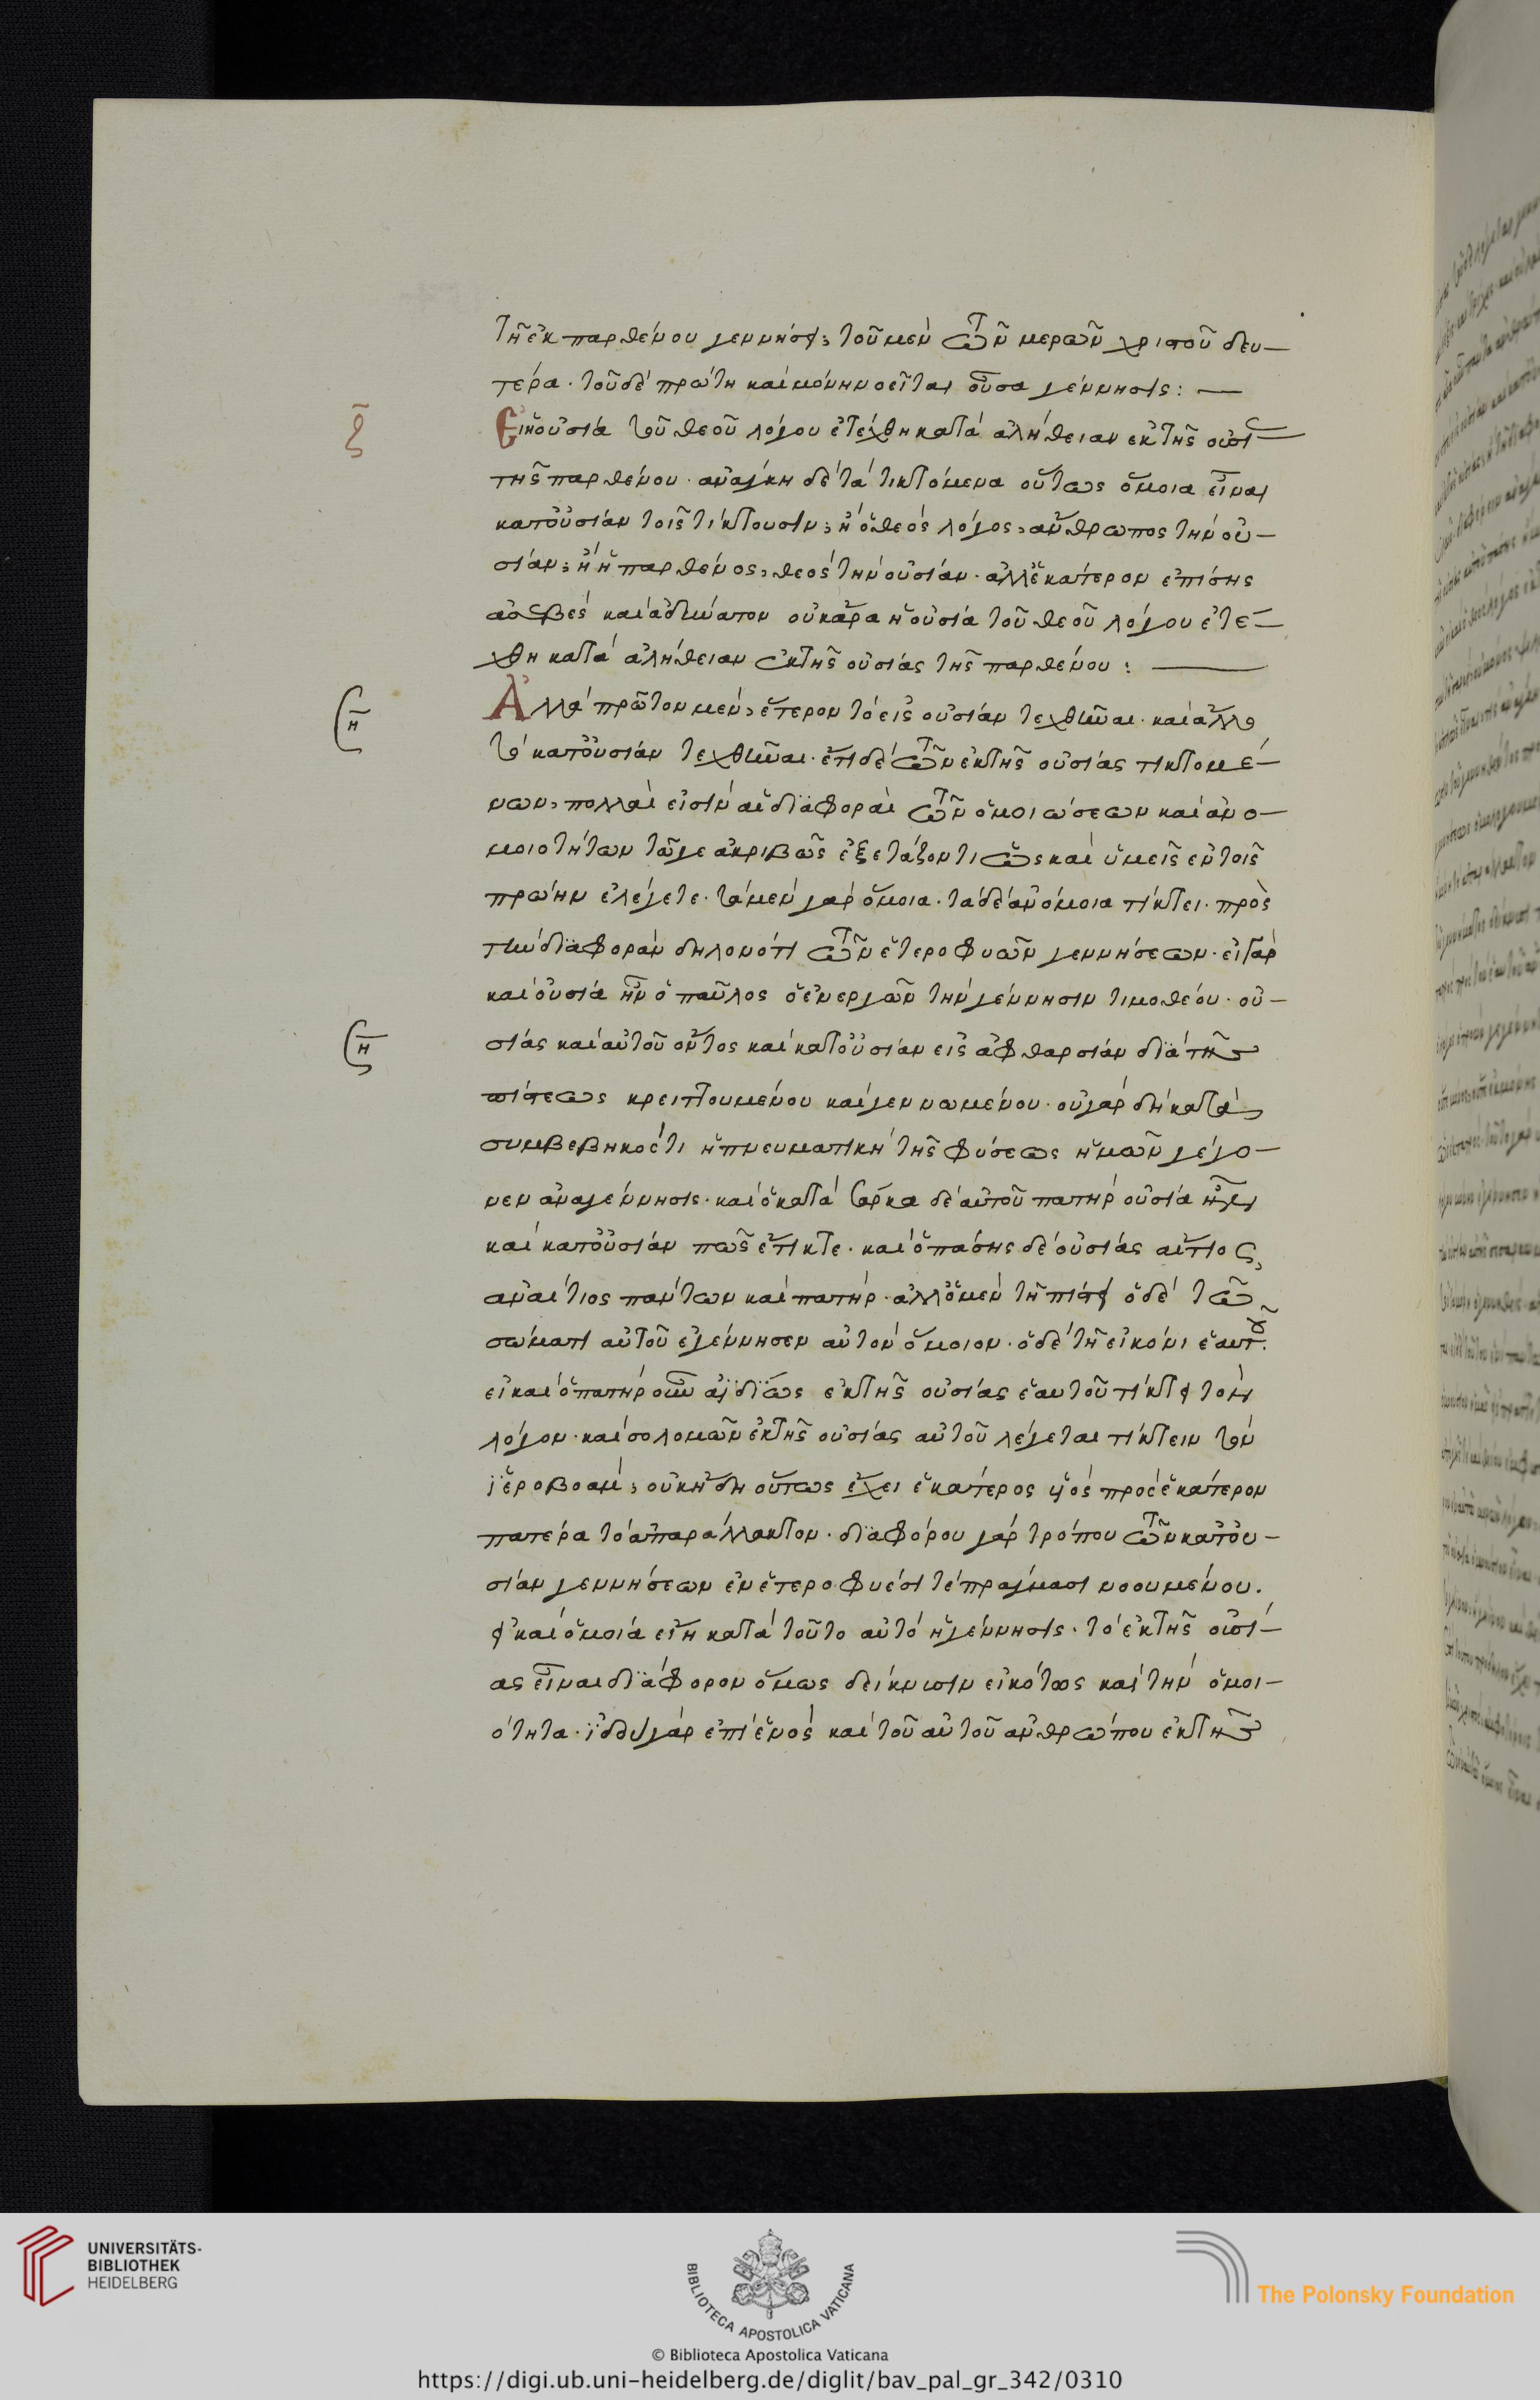 τῆ ἐκ παρθένου γεννήσει, τοῦ μὲν τῶν μερῶν χριστοῦ δευ-
τέρα. τοῦ δὲ πρώτη καὶ μόνη νοεῖται οὖσα γέννησις: —
ζ
Εἰ ἡ οὐσία τοῦ θεοῦ λόγου ἐτέχθη κατὰ ἀλήθειαν ἐκ τῆς οὐσί
τῆς παρθένου. ἀνάγκη δὲ τὰ τικτόμενα οὕτως ὅμοια εἶναι
κατ' οὐσίαν τοῖς τίκτουσιν, ἢ ὁ θεὸς λόγος, ἄνθρωπος τὴν οὐ-
σίαν, ἢ ἡ παρθένος, θεὸς τὴν οὐσίαν. ἀλλ' ἑκάτερον ἐπίσης
ἀσεβὲς καὶ ἀδύνατον οὐκ ἄρα ἡ οὐσία τοῦ θεοῦ λόγου ἐτέ-
χθη κατὰ ἀλήθειαν ἐκ τῆς οὐσίας τῆς παρθένου: —
η
Ἀλλὰ πρῶτον μὲν, ἕτερον τὸ εἰς οὐσίαν τεχθῆναι. καὶ ἄλλο
τὸ κατ' οὐσίαν τεχθῆναι. ἔτι δὲ τῶν ἐκ τῆς οὐσίας τικτομέ-
νων, πολλαὶ εἰσὶν αἱ διαφοραὶ τῶν ὁμοιώσεων καὶ ἀνο-
μοιοτήτων τῷ γε ἀκριβῶς ἐξετάζοντι ὡς καὶ ὑμεῖς ἐν τοῖς
πρώην ἐλέγετε. τὰ μὲν γὰρ ὅμοια. τὰ δὲ ἀνόμοια τίκτει. πρὸς
τὴν διαφορὰν δηλονότι τῶν ἑτεροφυῶν γεννήσεων. εἰ γὰρ
καὶ οὐσία ἦν ὁ παῦλος ὁ ἐνεργῶν τὴν γέννησιν τιμοθέου. οὐ-
η
σίας καὶ αὐτοῦ ὄντος καὶ κατ' οὐσίαν εἰς ἀφθαρσίαν διὰ τῆς
πίστεως κρειττουμένου καὶ γεννωμένου. οὐ γὰρ δὴ κατὰ
συμβεβηκός τι ἡ πνευματικὴ τῆς φύσεως ἡμῶν γέγο-
νεν ἀναγέννησις. καὶ ὁ κατὰ σάρκα δὲ αὐτοῦ πατὴρ οὐσία ἦν
καὶ κατ' οὐσίαν πως ἔτικτε. καὶ ὁ πάσης δὲ οὐσίας αἴτιος,
ἀναίτιος πάντων καὶ πατήρ. ἀλλ' ὁ μὲν τῆ πίστει ὁ δὲ τῶ
σώματι αὐτοῦ ἐγέννησεν αὐτὸν ὅμοιον. ὁ δὲ τῆ εἰκόνι ἑαυτοῦ.
εἰ καὶ ὁ πατὴρ οὖν ἀϊδίως ἐκ τῆς οὐσίας ἑαυτοῦ τίκτει τὸν
λόγον. καὶ σολομῶν ἐκ τῆς οὐσίας αὐτοῦ λέγεται τίκτειν τὸν
ἱεροβοάμ, οὐκ ἤδη οὕτως ἔχει ἑκάτερος υἱὸς πρὸς ἑκάτερον
πατέρα τὸ ἀπαράλλακτον. διαφόρου γὰρ τρόπου τῶν κατ' οὐ-
σίαν γεννήσεων ἐν ἑτεροφυέσί τε πράγμασι νοουμένου.
εἰ καὶ ὁμοία εἴη κατὰ τοῦτο αὐτὸ ἡ γέννησις. τὸ ἐκ τῆς οὐσί-
ας εἶναι διάφορον ὅμως δείκνυσιν εἰκότως καὶ τὴν ὁμοι-
ότητα. ἰδοὺ γὰρ ἐπὶ ἑνὸς καὶ τοῦ αὐτοῦ ἀνθρώπου ἐκ τῆς
UNIVERSITÄTS-
BIBLIOTHEK
HEIDELBERG
BIBLIOTECA APOSTOLICA VATICANA
The Polonsky Foundation
© Biblioteca Apostolica Vaticana
https://digi.ub.uni-heidelberg.de/diglit/bav_pal_gr_342/0310